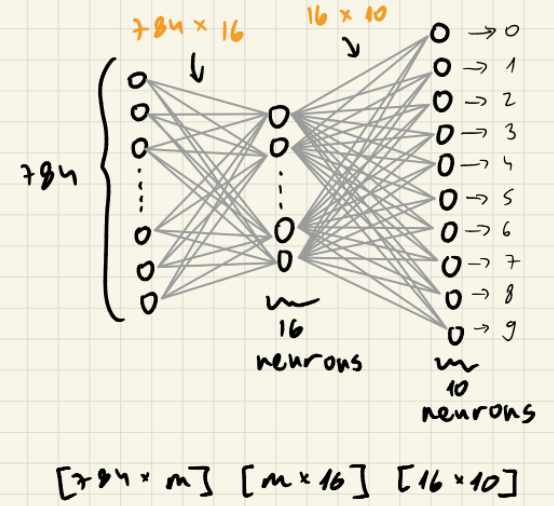 784 × 16
16 × 10
784
→ 0
→ 1
→ 2
→ 3
→ 4
→ 5
→ 6
→ 7
→ 8
→ 9
16
neurons
10
neurons
[784 × m] [m × 16] [16 × 10]